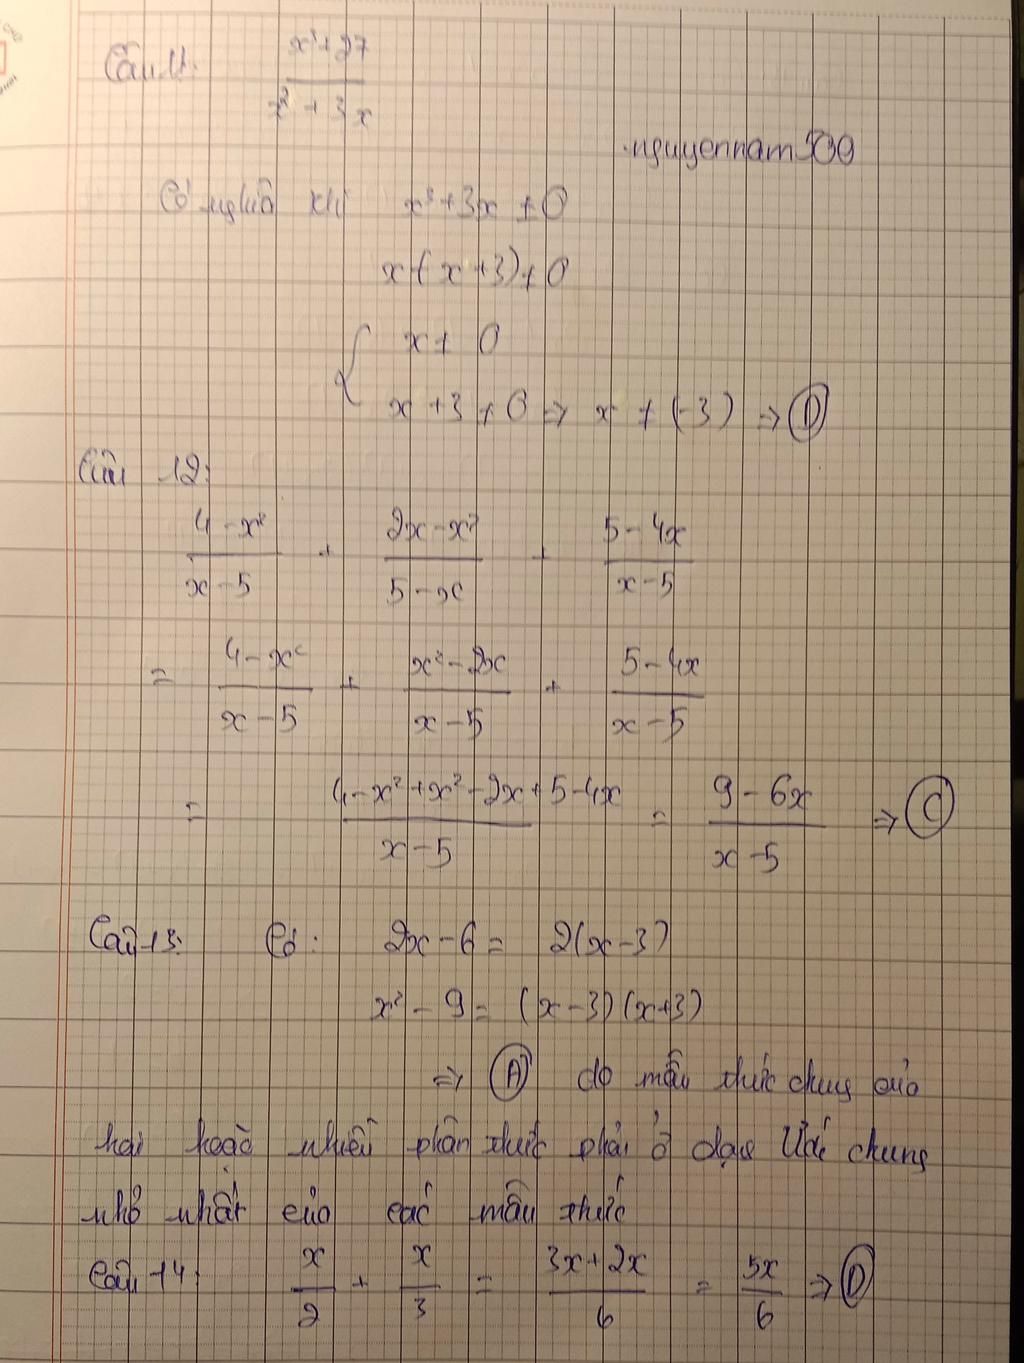 Câu 11: x³+27 / x²+3x
nguyennam509
Có nghĩa khi x²+3x ≠ 0
x(x+3) ≠ 0
{ x ≠ 0
x+3 ≠ 0 => x ≠ (-3) => D
Câu 12:
4-x² / x-5 + 2x-x² / 5-x + 5-4x / x-5
= 4-x² / x-5 + x²-2x / x-5 + 5-4x / x-5
= 4-x²+x²-2x+5-4x / x-5 = 9-6x / x-5 => C
Câu 13: Có: 2x-6 = 2(x-3)
x²-9 = (x-3)(x+3)
=> A do mẫu thức chung của
hai hoặc nhiều phân thức phải ở dạng Ước chung
nhỏ nhất của các mẫu thức
Câu 14: x/2 + x/3 = 3x+2x / 6 = 5x/6 => D